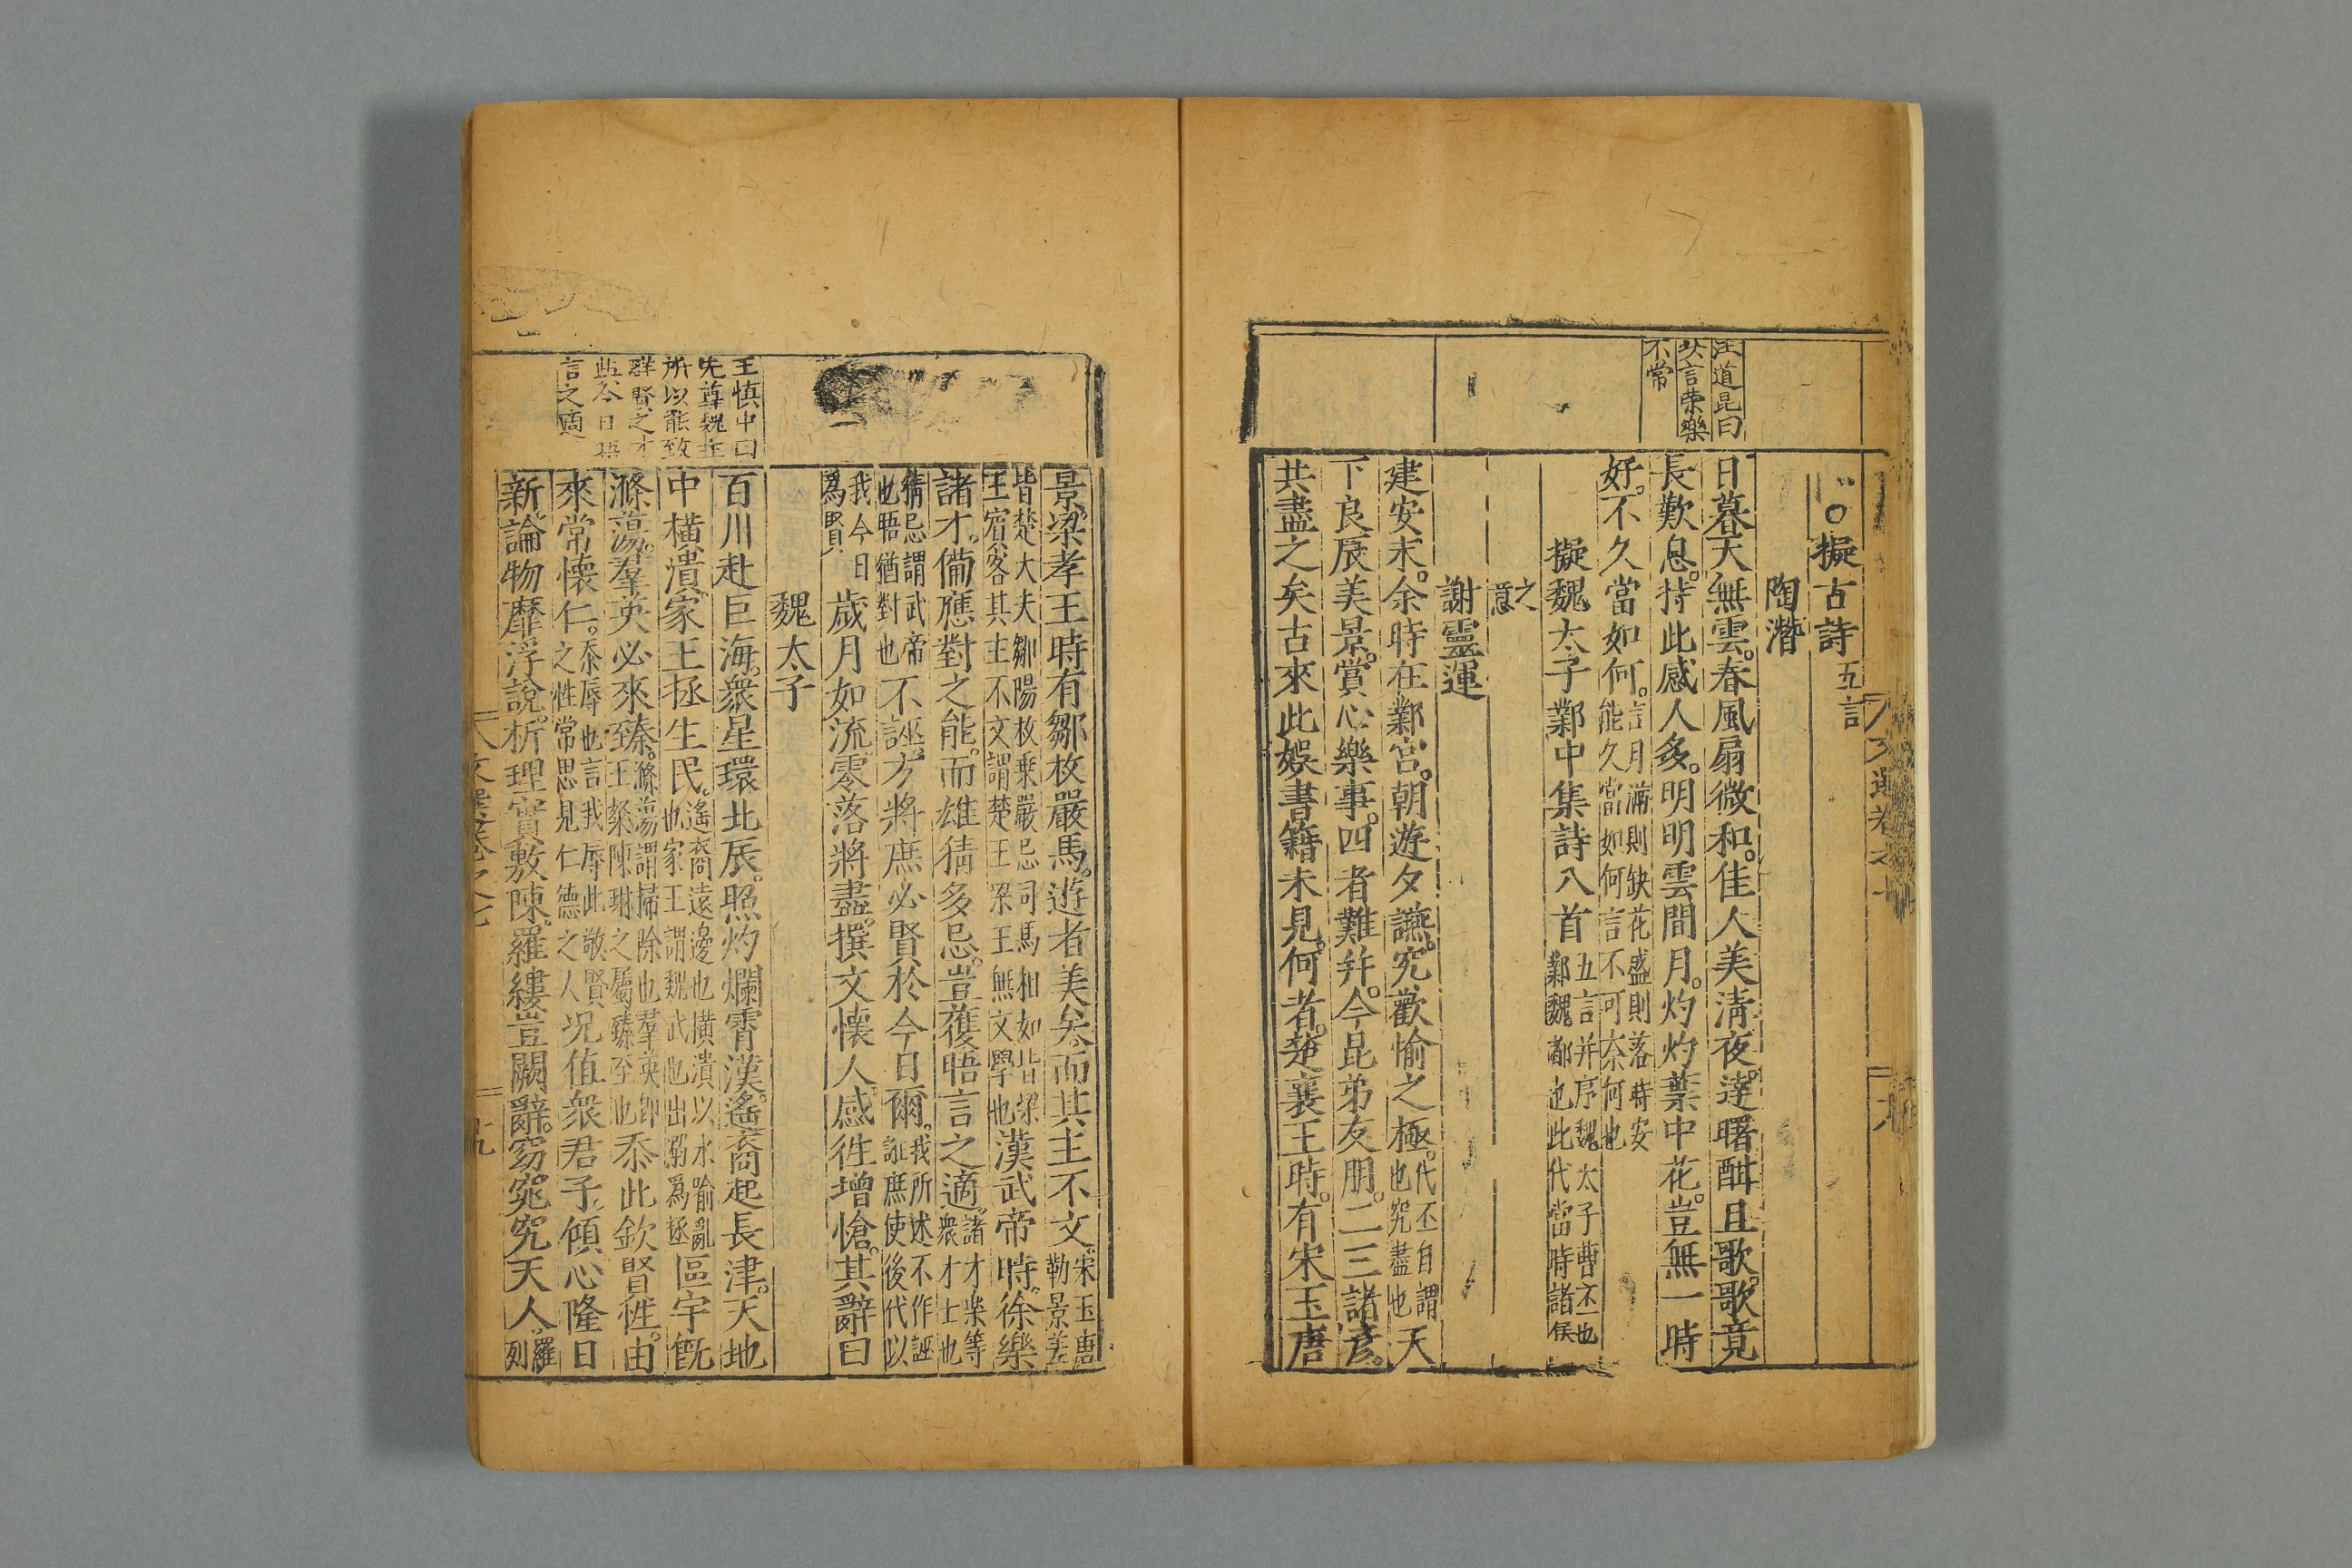 擬古詩五言
陶潛
日暮天無雲春風扇微和佳人美清夜達曙酣且歌歌竟
長歎息持此感人多明明雲間月灼灼葉中花豈無一時
好不久當如何言月滿則缺花盛則落時安能久當如何言不可奈何也
擬魏太子鄴中集詩八首五言并序魏太子曹丕也鄴魏都也此代當時諸侯
之意
謝靈運
建安末余時在鄴宮朝遊夕讌究歡愉之極代丕自謂也究盡也天
下良辰美景賞心樂事四者難并今昆弟友朋二三諸彥
共盡之矣古來此娛書籍未見何者楚襄王時有宋玉唐
汪道昆曰
失言荣樂
不常
景梁孝王時有鄒枚嚴馬遊者美矣而其主不文宋玉唐勒景差
皆楚大夫鄒陽枚乗嚴忌司馬相如皆梁王賓客其主不文謂楚王梁王無文學也漢武帝時徐樂
諸才備應對之能而雄猜多忌豈獲晤言之適諸才樂等衆才士也
猜忌謂武帝也晤猶對也不誣方將庶必賢於今日爾我所述不作誣証庶使後代以
我今日爲賢歲月如流零落將盡撰文懷人感徃增愴其辭曰
魏太子
百川赴巨海衆星環北辰照灼爛霄漢遙裔起長津天地
中橫潰家王拯生民遙裔遠邊也橫潰以水喻亂也家王謂魏武也出溺爲拯區宇旣
滌蕩羣英必來臻滌蕩謂掃除也羣英卽王粲陳琳之屬臻至也忝此欽賢性由
來常懷仁忝辱也言我辱此敬賢之性常思見仁德之人况值衆君子傾心隆日
新論物靡浮說析理實敷陳羅縷豈闕辭窈窕究天人羅列
王愼中曰
先尊魏主
所以能致
群賢之才
言之適